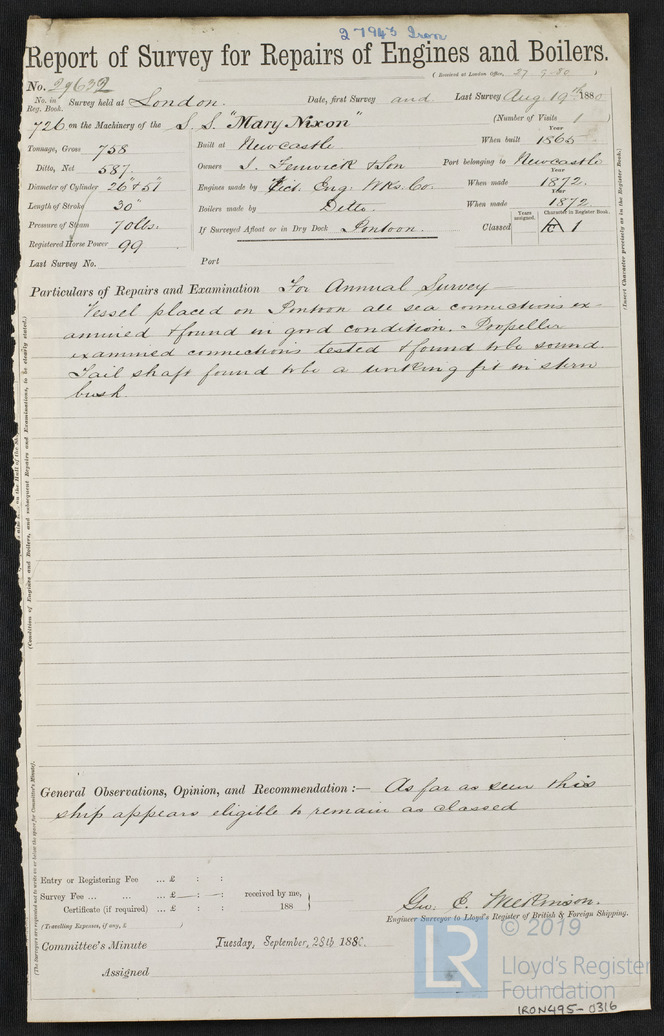 27943 Iron
Report of Survey for Repairs of Engines and Boilers.
(Received at London Office, 27-9-80)
No. 29632
No. in Reg. Book. Survey held at London. Date, first Survey and Last Survey Aug. 19th 1880
726 on the Machinery of the S. S. "Mary Nixon" (Number of Visits 1)
Tonnage, Gross 758 Built at Newcastle When built Year 1865
Ditto, Net 587 Owners J. Fenwick & Son Port belonging to Newcastle
Diameter of Cylinder 26" & 51" Engines made by Vict. Eng. Wks. Co. When made Year 1872.
Length of Stroke 30" Boilers made by Ditto. When made Year 1872.
Pressure of Steam 70 lbs. If Surveyed Afloat or in Dry Dock Pontoon. Classed Years assigned. Character in Register Book. A 1
Registered Horse Power 99
Last Survey No. Port
Particulars of Repairs and Examination For Annual Survey —
Vessel placed on Pontoon all sea connections ex-
amined & found in good condition. Propeller
examined connections tested & found to be sound.
Tail shaft found to be a working fit in stern
bush.
General Observations, Opinion, and Recommendation :— As far as seen this
ship appears eligible to remain as classed
Entry or Registering Fee ... £ : :
Survey Fee ... ... ... £ — : — : received by me,
Certificate (if required) ... £ : : 188
(Travelling Expenses, if any, £ )
Geo. C. Wilkinson.
Engineer Surveyor to Lloyd's Register of British & Foreign Shipping.
Committee's Minute Tuesday, September, 28th 1880.
Assigned
(Insert Character precisely as in the Register Book.)
(Condition of Engines and Boilers, and subsequent Repairs and Examinations, to be clearly stated.)
LR
© 2019
Lloyd's Register
Foundation
IRON495-0316